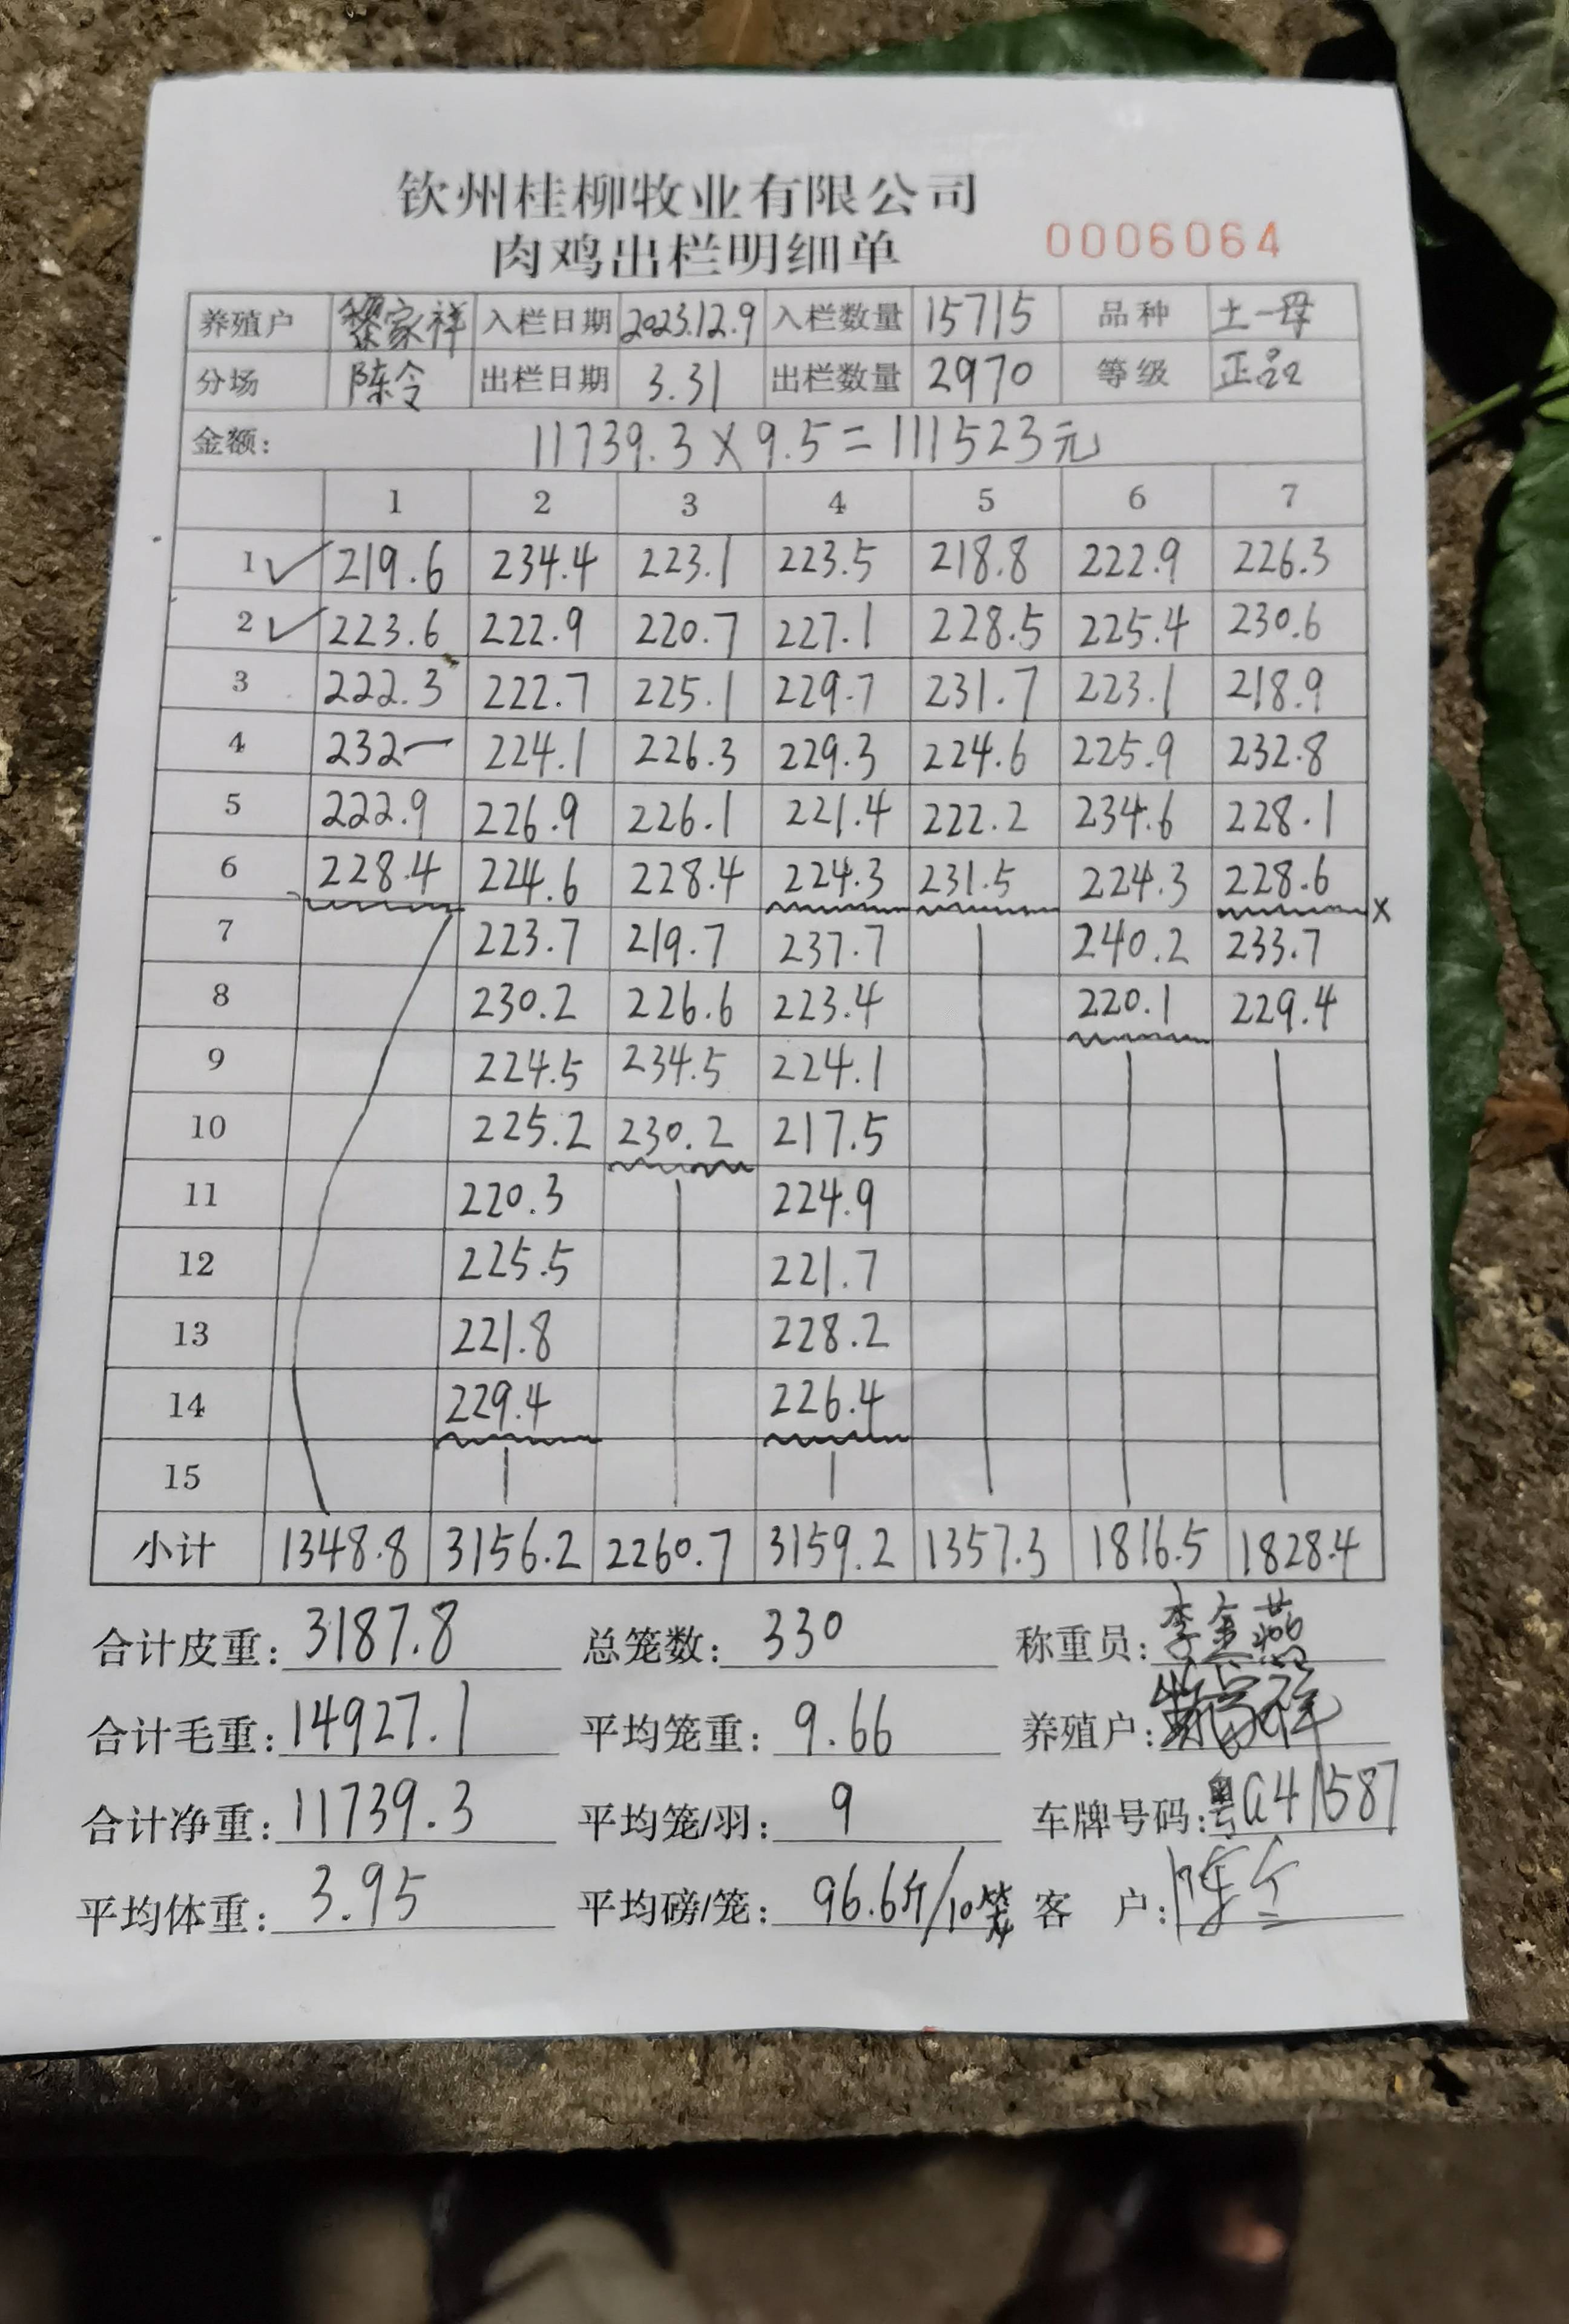 钦州桂柳牧业有限公司
肉鸡出栏明细单 0006064
养殖户 黎家祥 入栏日期 2023.12.9 入栏数量 15715 品种 土一母
分场 陈令 出栏日期 3.31 出栏数量 2970 等级 正品
金额: 11739.3×9.5=111523元
1 2 3 4 5 6 7
1 ✓ 219.6 234.4 223.1 223.5 218.8 222.9 226.3
2 ✓ 223.6 222.9 220.7 227.1 228.5 225.4 230.6
3 222.3 222.7 225.1 229.7 231.7 223.1 218.9
4 232一 224.1 226.3 229.3 224.6 225.9 232.8
5 222.9 226.9 226.1 221.4 222.2 234.6 228.1
6 228.4 224.6 228.4 224.3 231.5 224.3 228.6 ×
7 223.7 219.7 237.7 240.2 233.7
8 230.2 226.6 223.4 220.1 229.4
9 224.5 234.5 224.1
10 225.2 230.2 217.5
11 220.3 224.9
12 225.5 221.7
13 221.8 228.2
14 229.4 226.4
15
小计 1348.8 3156.2 2260.7 3159.2 1357.3 1816.5 1828.4
合计皮重: 3187.8 总笼数: 330 称重员: 李金燕
合计毛重: 14927.1 平均笼重: 9.66 养殖户: 黎家祥
合计净重: 11739.3 平均笼/羽: 9 车牌号码: 粤G41587
平均体重: 3.95 平均磅/笼: 96.6斤/10笼 客 户: 陈令